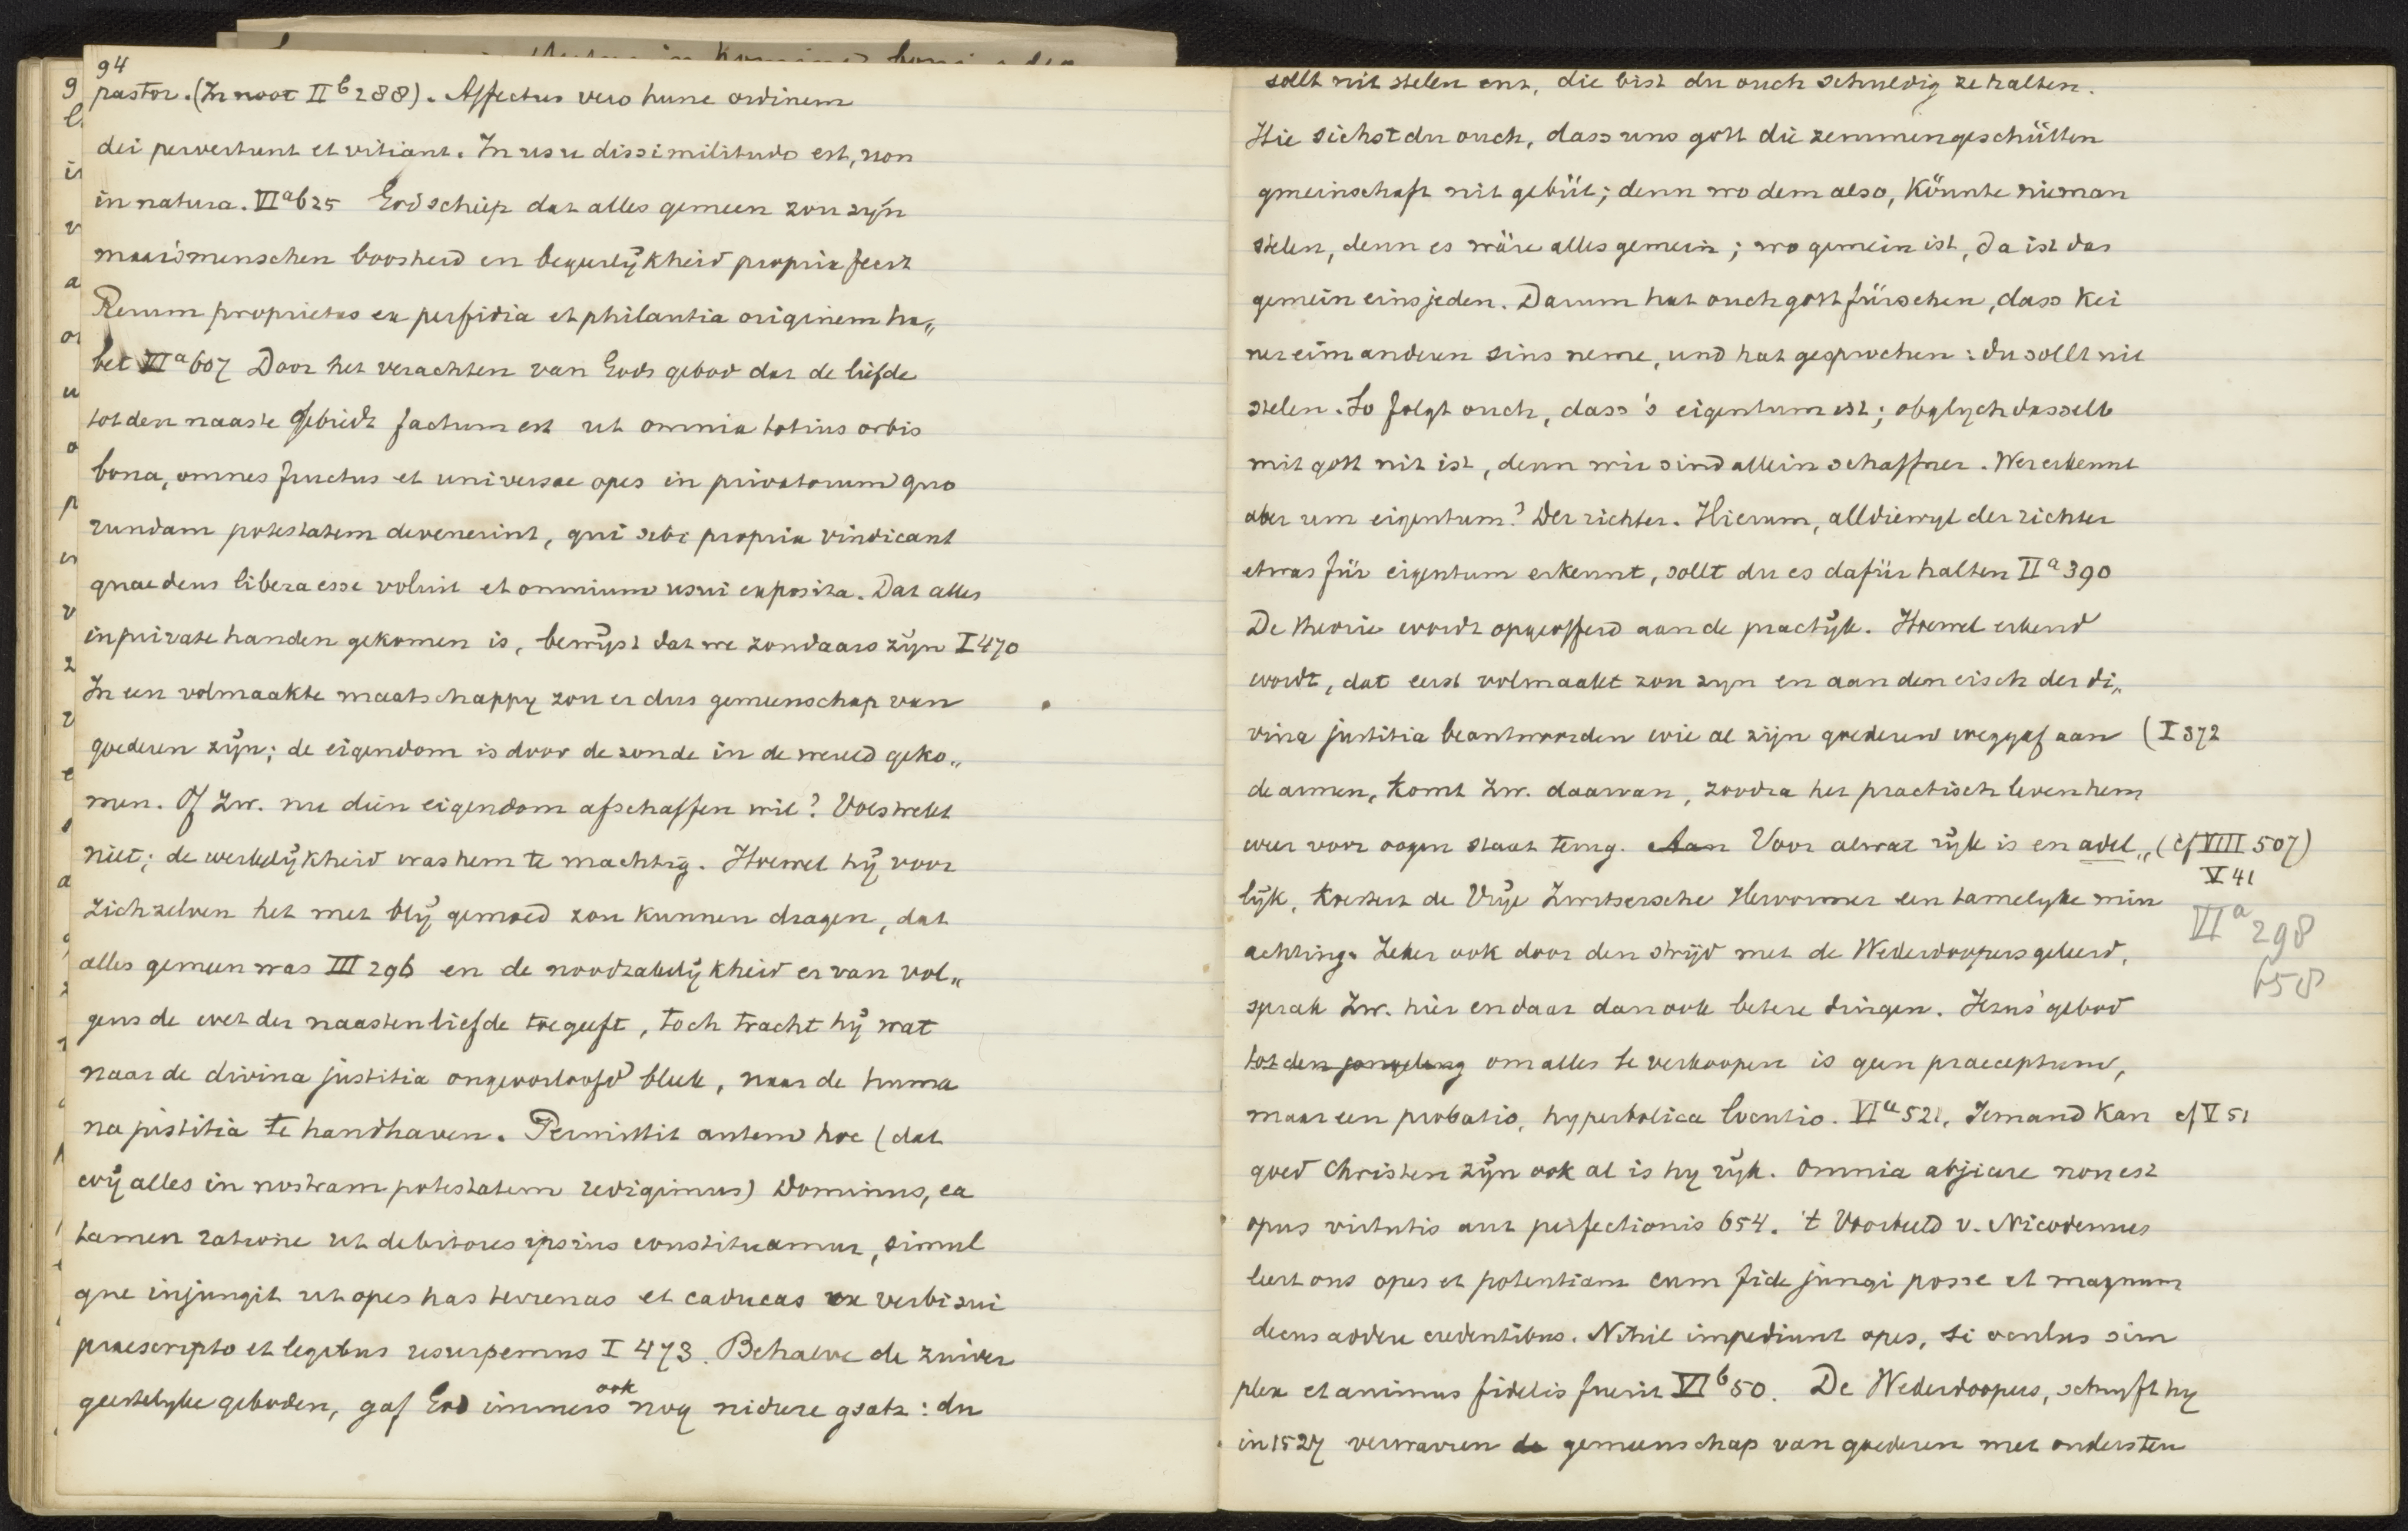 94
pastor. (In noot II b 288). Affectus vero hunc ordinem
dei pervertunt et vitiant. In usu dissimilitudo est, non
in natura. VI a 625 God schiep dat alles gemeen zou zyn
maar 's menschen boosheid en begeerlijkheid propria fecit
Rerum proprietas ex perfidia et philautia originem ha„
bet VI a 607 Door het verachten van Gods gebod dat de liefde
tot den naaste gebiedt factum est ut omnia totius orbis
bona, omnes fructus et universae opes in privatorum quo
rundam potestatem devenerint, qui sibi propria vindicant
quae deus libera esse voluit et omnium usui exposita. Dat alles
in private handen gekomen is, bewijst dat we zondaars zijn I 470
In een volmaakte maatschappy zou er dus gemeenschap van
goederen zijn; de eigendom is door de zonde in de wereld geko„
men. Of Zw. nu dien eigendom afschaffen wil? Volstrekt
niet; de werkelijkheid was hem te machtig. Hoewel hij voor
zichzelven het met blij gemoed zou kunnen dragen, dat
alles gemeen was III 296 en de noodzakelijkheid er van vol„
gens de wet der naastenliefde toegeeft, toch tracht hij wat
naar de divina justitia ongeoorloofd bleek, naar de huma
na justitia te handhaven. Permittit autem hoc (dat
wij alles in nostram potestatem redigimus) Dominus, ea
tamen ratione ut debitores ipsius constituamur, simul
que injungit ut opes has terrenas et caducas ex verbi sui
praescripto et legibus usurpemus I 473. Behalve de zuiver
geestelyke geboden, gaf God immers ook nog nidere gsatz: du
sollt nit stelen enz, die bist du ouch schuldig ze halten.
Hie sichst du ouch, dass uns gott die zemmengeschütten
gmeinschaft nit gebüt; denn wo dem also, könnte nieman
stelen, denn es wäre alles gemein; wo gemein ist, da ist das
gemein eins jeden. Darum hat ouch gott fürsehen, dass kei
ner eim anderen sins neme, und hat gesprochen: du sollt nit
stelen. So folgt ouch, dass 's eigentum ist; obglych dasselb
mit gott nit ist, denn wir sind allein schaffner. Wer erkennt
aber um eigentum? Der richter. Hierum, alldiewyl der richter
etwas für eigentum erkennt, sollt du es dafür halten II a 390
De theorie wordt opgeofferd aan de practijk. Hoewel erkend
wordt, dat eerst volmaakt zou zyn en aan den eisch der di„
vina justitia beantwoorden wie al zijn goederen weggaf aan (I 372
de armen, komt Zw. daarvan, zoodra het practisch leven hem
weer voor oogen staat terug. Aan Voor alwat rijk is en adel„ (cf VIII 507)
V 41
lijk, koestert de Vrije Zwitsersche Hervormer een tamelyke min
VII a 298
achting. Zeker ook door den strijd met de Wederdoopers geleerd,
658
sprak Zw. hier en daar dan ook betere dingen. Jezus' gebod
tot den jongeling om alles te verkoopen is geen praeceptum,
maar een probatio, hyperbolica locutio. VI a 521. Iemand kan cf V 51
goed Christen zijn ook al is hy rijk. Omnia abjicere non est
opus virtutis aut perfectionis 654. 't Voorbeeld v. Nicodemus
leert ons opes et potentiam cum fide jungi posse et magnum
decus addere credentibus. Nihil impediunt opes, si oculus sim
plex et animus fidelis fuerit VI b 50. De Wederdoopers, schryft hy
in 1527 verwarren de gemeenschap van goederen met ondersteu